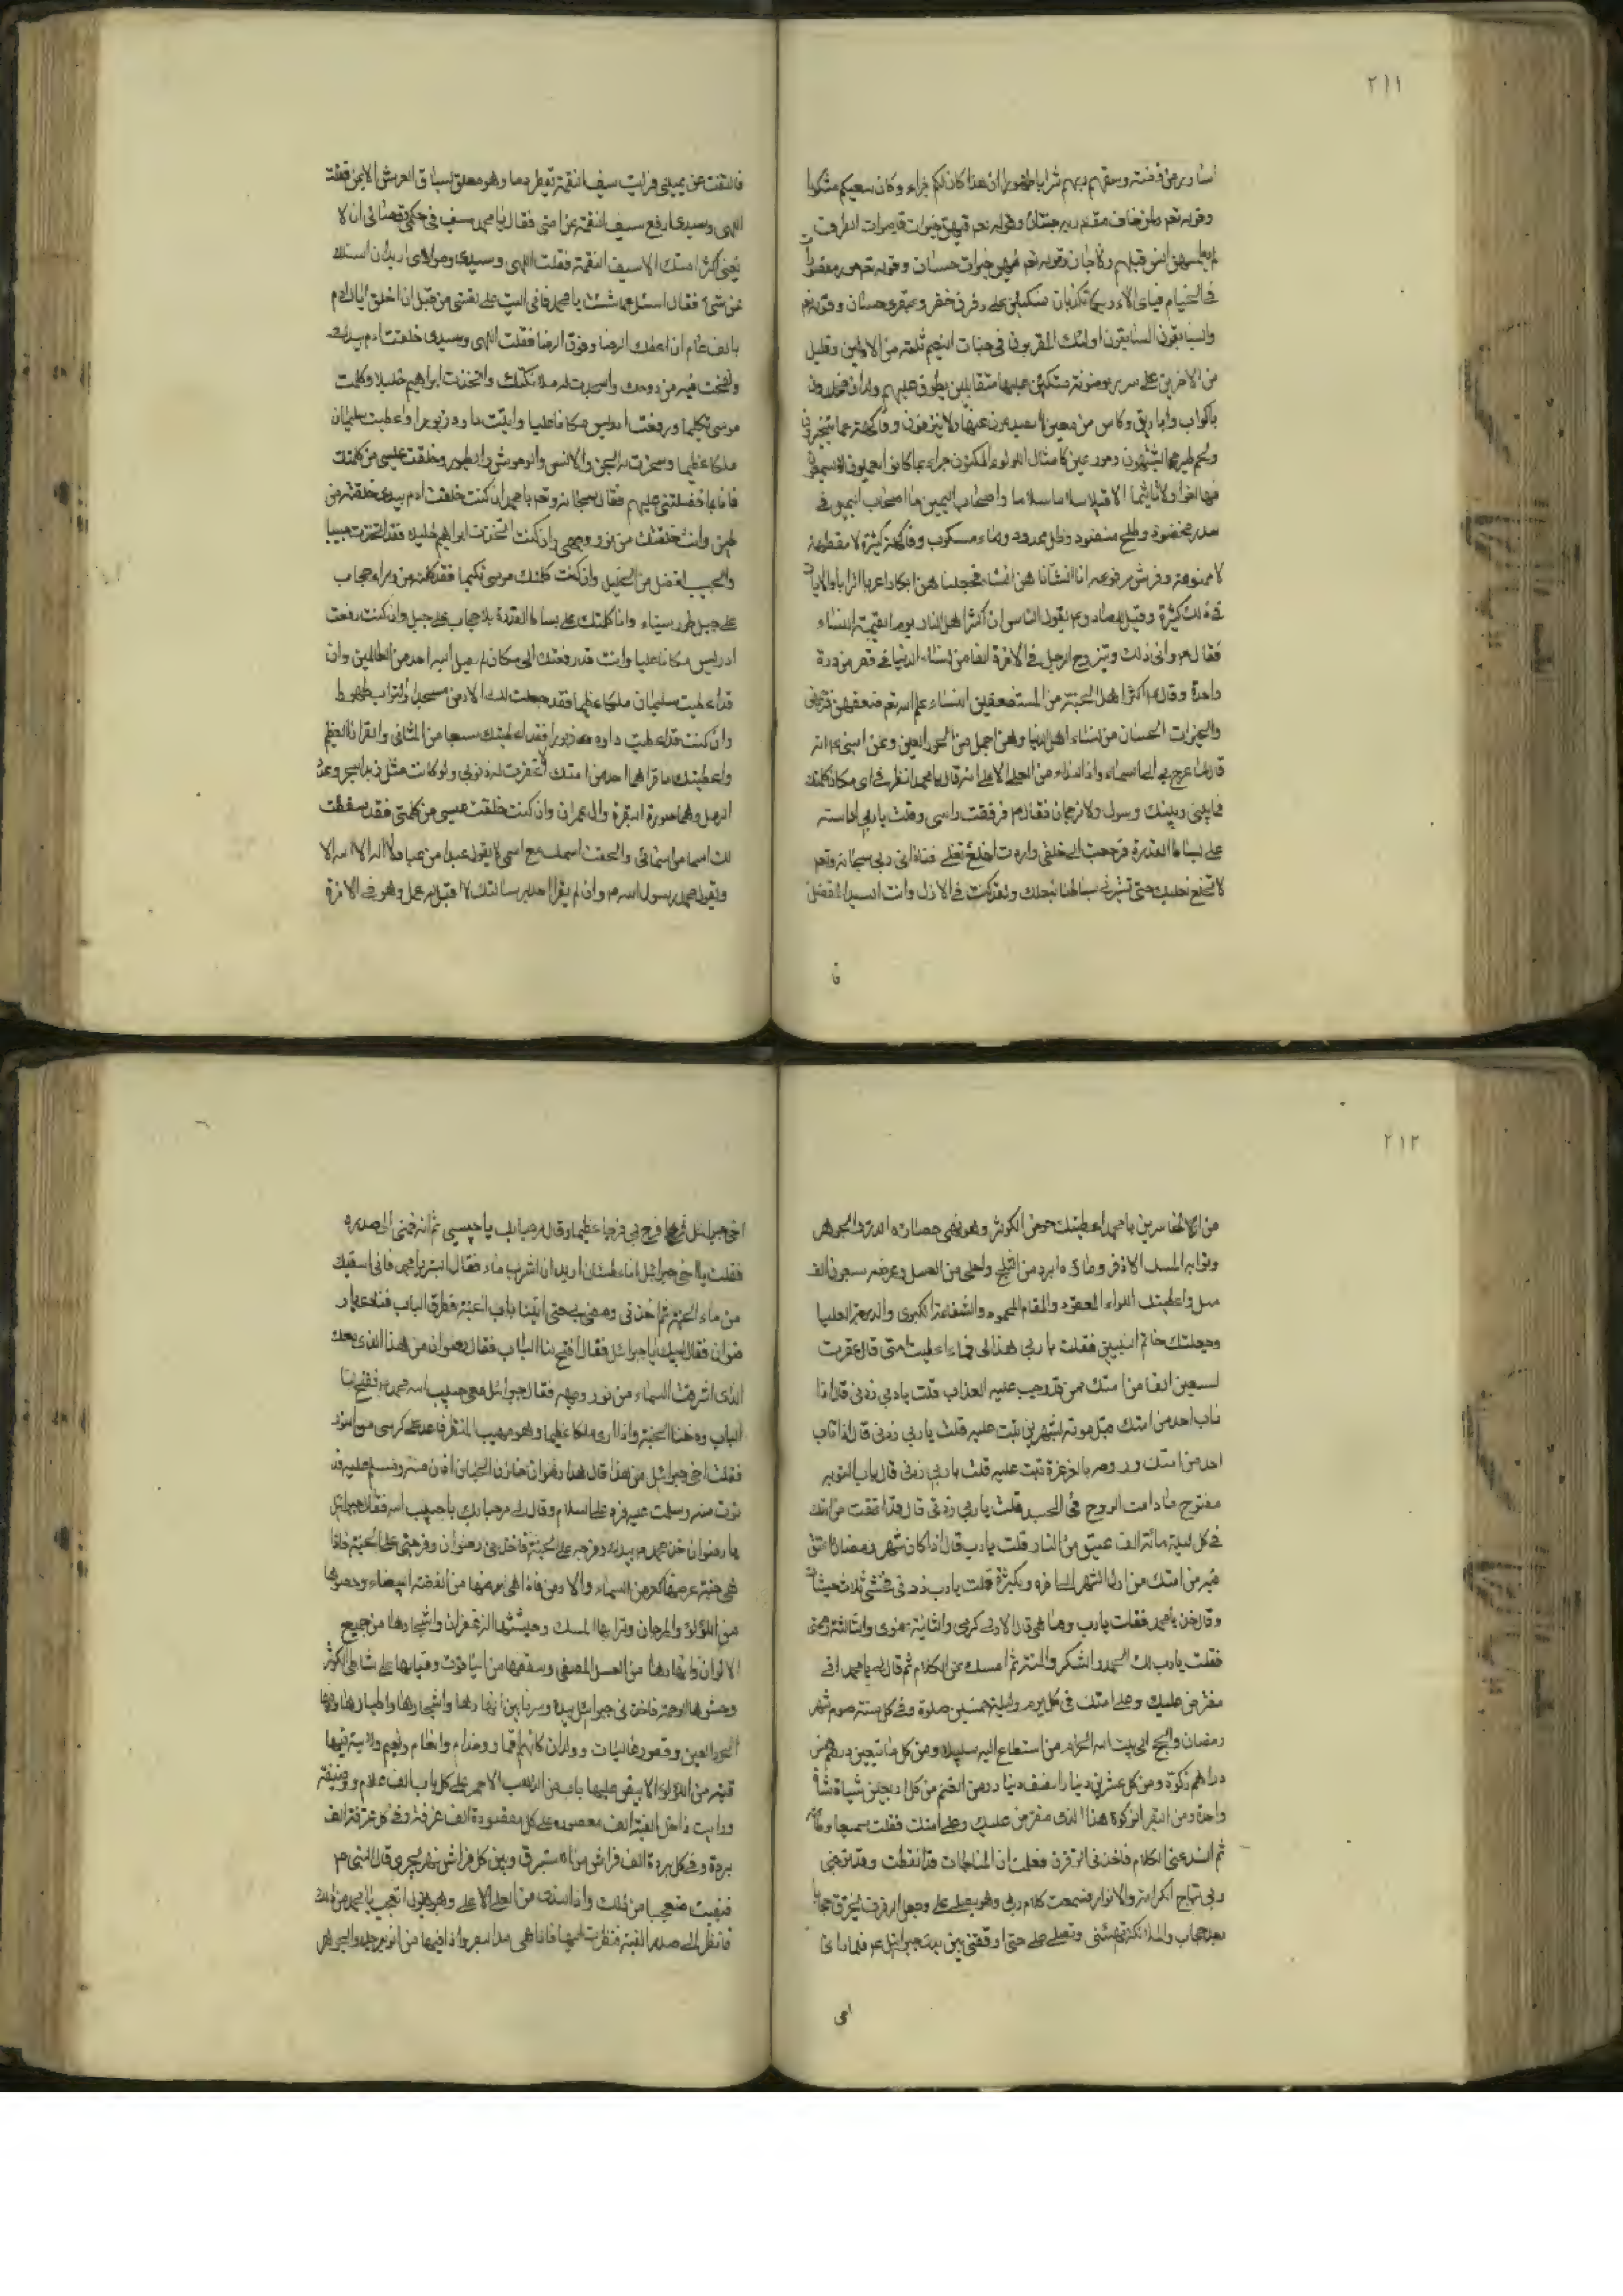 ٢١١
اساور من فضة وسقيهم ربهم شرابا طهورا ان هذا كان لكم جزاء وكان سعيكم مشكورا
وقوله تعم ولمن خاف مقام ربه جنتان وقوله تعم فيهن خيرات قاصرات الطرف
لم يطمسهن انس قبلهم ولا جان وقوله تعم فيهن خيرات حسان وقوله تعم حور مقصورات
في الخيام فباى الاء ربكما تكذبان متكئين على رفرف خضر وعبقرى حسان وقوله تعم
والسابقون السابقون اولئك المقربون في جنات النعيم ثلة من الاولين وقليل
من الاخرين على سرر موضونة متكئين عليها متقابلين يطوف عليهم ولدان مخلدون
باكواب واباريق وكاس من معين لا يصدعون عنها ولا ينزفون وفاكهة مما يتخيرون
ولحم طير مما يشتهون وحور عين كامثال اللؤلؤ المكنون جزاء بما كانوا يعملون لا يسمعون
فيها لغوا ولا تاثيما الا قيلا سلاما سلاما واصحاب اليمين ما اصحاب اليمين في
سدر مخضود وطلح منضود وظل ممدود وماء مسكوب وفاكهة كثيرة لا مقطوعة
لا ممنوعة وفرش مرفوعة انا انشأناهن انشاء فجعلناهن ابكارا عربا اترابا والايات
في ذلك كثيرة وقيل للصادق عم يقول الناس ان اكثر اهل النار يوم القيمة النساء
فقال عم وانى ذلك وتيزوج الرجل في الاخرة الفا من نساء الدنيا في قصر من درة
واحدة وقال اكثر اهل الجنة من المستضعفين النساء علم الله تعم ضعفهن فرحمهن
والخيرات الحسان من نساء اهل الدنيا وهن اجمل من الحور العين وعن النبى ص انه
قال لما عرج بى الى السماء واذ النداء من العلى الاعلى انه قال يا محمد انظر في اى مكان كلمتك
فما بينى وبينك رسول ولا ترجمان فقال م فرفعت راسى وقلت يا ربى
على بساط القدرة فرجعت الى خلفى واردت اخلع نعلى فنادانى ربى سبحانه وتعم
لا تخلع نعليك حتى تشرف بساطنا بنعلك ولقد كنت في الازل وانت السيد المفضل
فا
فالتفت عن يمينى فرايت سيف النقمة تقطر دما وهو معلق بساق العرش الايمن فقلت
الهى وسيدى ارفع سيف النقمة عن امتى فقال يا محمد سبق في حكمى وقضائى ان لا
يفنى اكثر امتك الا سيف النقمة فقلت الهى وسيدى ومولاى اريد ان اسئلك
عن شئ فقال اسئل عما شئت يا محمد فانى اليت على نفسى من قبل ان اخلق اباك ادم
بالف عام ان اعطك الرضا وفوق الرضا فقلت الهى وسيدى خلقت ادم بيدك
ونفخت فيه من روحك واسجدت له ملائكتك واتخذت ابراهيم خليلا وكلمت
موسى تكليما ورفعت ادريس مكانا عليا واتيت داود زبورا واعطيت سليمان
ملكا عظيما وسخرت له الجن والانس والوحوش والطيور وخلقت عيسى من كلمتك
فبماذا فضلتنى عليهم فقال سبحانه وتعم يا محمد ان كنت خلقت ادم بيدى خلقته من
طين وانت خلقتك من نور وجهى وان كنت اتخذت ابراهيم خليلا فقد اتخذتك حبيبا
والحبيب افضل من الخليل وان كنت كلمت موسى تكليما فقد كلمته من وراء حجاب
على جبل طور سيناء وانا كلمتك على بساط القدرة بلا حجاب على جبل وان كنت رفعت
ادريس مكانا عليا وانت قد رفعتك الى مكان لم يصل اليه احد من العالمين وان
قد اعطيت سليمان ملكا عظيما فقد جعلت لك الارض مسجدا والتراب طهورا
وان كنت قد اعطيت داود زبورا فقد اعطيتك سبعا من المثانى والقران العظيم
واعطيتك ما قراهما احد من امتك الا غفرت له ذنوبه ولو كانت مثل زبد البحر وعدد
الرمل وهما سورة البقرة وال عمران وان كنت خلقت عيسى من كلمتى فقد شققت
لك اسما من اسمائى والحقت اسمك مع اسمى لا يقول عبد من عبادى لا اله الا الله الا
ويقول محمد رسول الله ص وان لم يقر احد برسالتك لا اقبل له عمل وهو في الاخرة
٢١٢
من الخاسرين يا محمد اعطيتك حوض الكوثر وهو نهر حصاؤه الدر والجوهر
وترابه المسك الاذفر وماؤه ابرد من الثلج واحلى من العسل وعرضه سبعون الف
ميل واعطيتك اللواء المعقود والمقام المحمود والشفاعة الكبرى والدرجة العليا
وجعلتك خاتم النبيين فقلت يا ربى هذا لى فما اعطيت امتى قال غفرت
لسبعين الفا من امتك ممن قد وجب عليه العذاب قلت يا ربى زدنى قال اذا
تاب احد من امتك قبل موته بشهرين تبت عليه قلت يا ربى زدنى قال اذا تاب
احد من امتك وروحه بالغرغرة تبت عليه قلت يا ربى زدنى قال باب التوبة
مفتوح ما دامت الروح في الجسد قلت يا ربى زدنى قال قد اعتقت من امتك
في كل ليلة مائة الف عتيق من النار قلت يا رب قال اذا كان شهر رمضان اعتق
فيه من امتك من اول الشهر الى اخره وبكثرة قلت يا رب زدنى فحثى ثلاث حثيات
وقال خذ يا محمد فقلت يا رب وما هى قال الاولى كرمى والثانية عفوى والثالثة رحمتى
فقلت يا رب لك الحمد والشكر والمنة ثم امسك عن الكلام ثم قال لى يا محمد انى
مفترض عليك وعلى امتك في كل يوم وليلة خمسين صلوة وفي كل سنة صوم شهر
رمضان والحج الى بيت الله الحرام من استطاع اليه سبيلا ومن كل مأتين درهم خمس
دراهم زكوة ومن كل عشرين دينارا نصف دينار ومن الغنم من كل اربعين شياة شاة
واحدة ومن البقر الزكوة هذا الذى مفترض عليك وعلى امتك فقلت سمعا وطاعة
ثم انسد عنى الكلام فاخذنى الرفرف فعلمت ان المناجات قد انقطعت وقد توجنى
ربى بتاج الكرامة والانوار فسمعت كلام ربى وهو يصلى على وجعل الرفرف يخترق حجابا
بعد حجاب والملائكة تهنئنى وتصلى على حتى اوقفنى بين يدى جبرائيل ع فلما رانا
اخى
اخى جبرائيل فرح بى فرحا عظيما وقال مرحبا بك يا حبيبى ثم انه ضمنى الى صدره
فقلت يا اخى جبرائيل انا عطشان اريد ان اشرب ماء فقال ابشر يا محمد فانى اسقيك
من ماء الجنة ثم اخذنى ومضى بى حتى اتينا باب الجنة فطرق الباب فناد يا
رضوان فقال لبيك يا جبرائيل فقال افتح لنا الباب فقال رضوان من هذا الذى معك
الذى اشرقت السماء من نور وجهه فقال جبرائيل معى حبيب الله محمد ص ففتح لنا
الباب ودخلنا الجنة واذا ارى ملكا عظيما وهو مهيب المنظر قاعد على كرسى من النور
فقلت اخى جبرائيل من هذا قال هذا رضوان خازن الجنان ادن منه وسلم عليه فد
نوت منه وسلمت عليه فرد على السلام وقال لى مرحبا بك يا حبيب الله فقال جبرائيل
يا رضوان خذ محمد ص بيدك وفرجه على الجنة فاخذنى رضوان وفرجنى على الجنة فاذا
هى جنة عرضها كعرض السماء والارض فاذا هى ارضها من الفضة البيضاء وحصاؤها
من اللؤلؤ والمرجان وترابها المسك وحشيشها الزعفران واشجارها من جميع
الالوان وانهارها من العسل المصفى وسقفها من الياقوت وقبابها على شاطئ الكوثر
وحشوها الرحمة فاخذنى جبرائيل بيده وسرنا بين انهارها واشجارها واطيارها
الحور العين وقصور عاليات وولدان كانهم اقمار وخدام وانعام ونعيم ورايت فيها
قبة من اللؤلؤ الابيض عليها باب من الذهب الاحمر على كل باب الف غلام ووصيفة
ورايت داخل القبة الف مقصورة على كل مقصورة الف غرفة وفي كل غرفة الف
بردة وفي كل بردة الف فراش من استبرق وبين كل فراش نهر يجرى قال النبى ص
فبقيت متعجبا من ذلك واذا النداء من العلى الاعلى وهو يقول اتعجب يا محمد من ذلك
فانظر الى صدر القبة فنظرت اليها فاذا هى